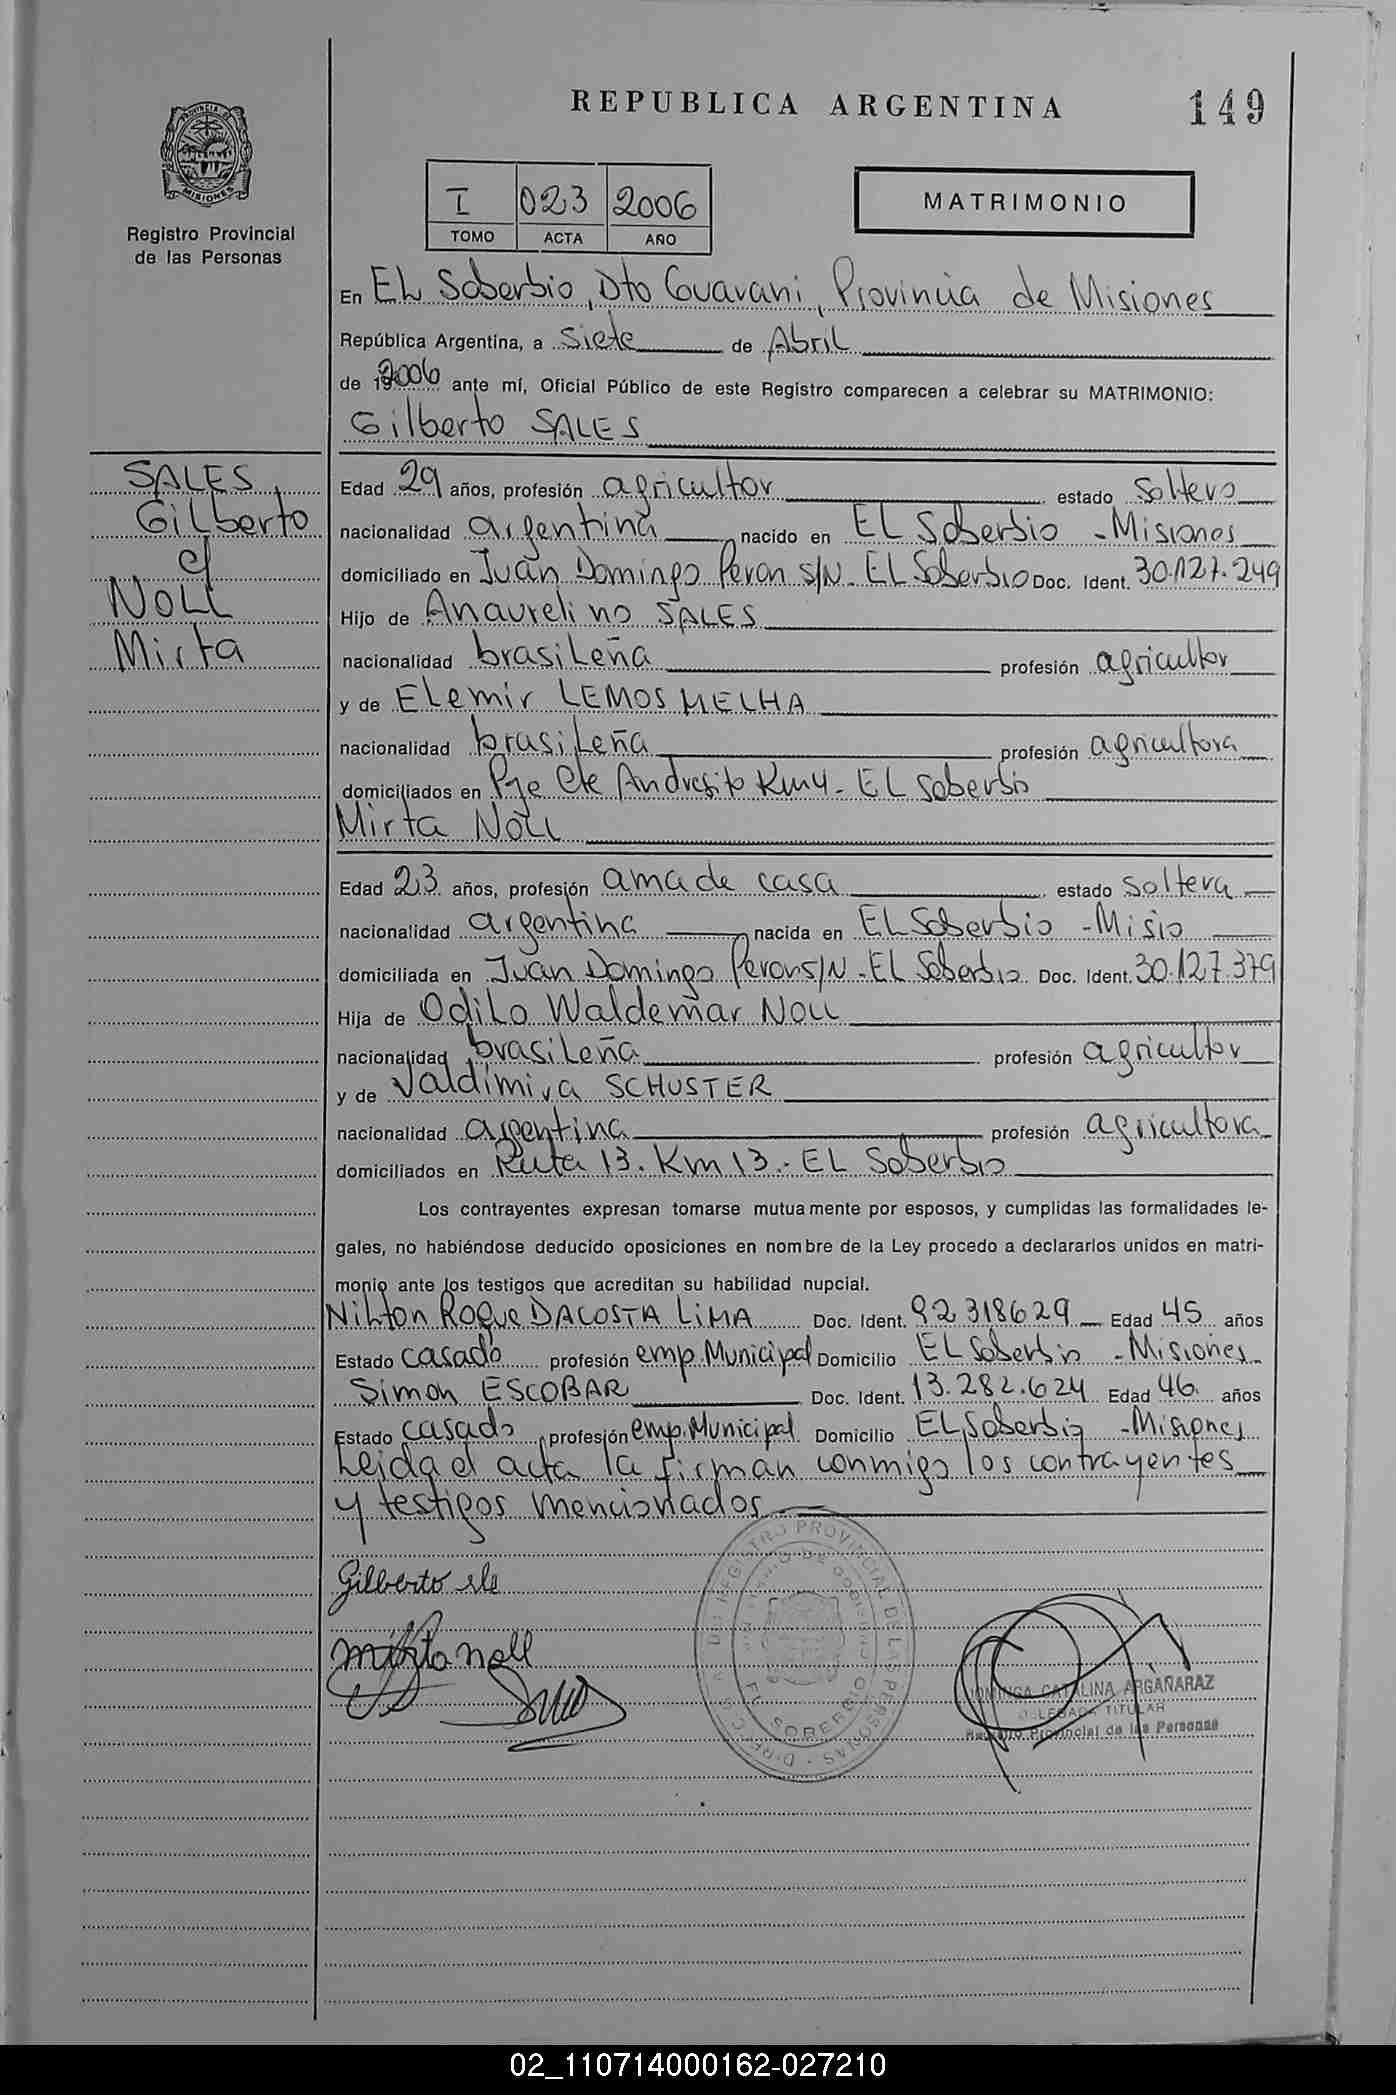 REPUBLICA ARGENTINA
149
PROVINCIA DE MISIONES
Registro Provincial
de las Personas
I 023 2006
TOMO ACTA AÑO
MATRIMONIO
En EL Soberbio, Dto Guarani, Provincia de Misiones
República Argentina, a Siete de Abril
de 2006 ante mí, Oficial Público de este Registro comparecen a celebrar su MATRIMONIO:
Gilberto SALES
SALES
Gilberto
c/
NOLL
Mirta
Edad 29 años, profesión agricultor estado Soltero
nacionalidad argentina nacido en EL Soberbio - Misiones
domiciliado en Juan Domingo Peron S/N - EL Soberbio Doc. Ident. 30.127.249
Hijo de Anaurelino SALES
nacionalidad brasileña profesión agricultor
y de Elemir LEMOS MELHA
nacionalidad brasileña profesión agricultora
domiciliados en Pje Cte Andresito Km 4 - EL Soberbio
Mirta NOLL
Edad 23 años, profesión ama de casa estado soltera
nacionalidad argentina nacida en EL Soberbio - Misio
domiciliada en Juan Domingo Peron S/N - EL Soberbio Doc. Ident. 30.127.379
Hija de Odilo Waldemar NOLL
nacionalidad brasileña profesión agricultor
y de Valdimira SCHUSTER
nacionalidad argentina profesión agricultora
domiciliados en Ruta 13. Km 13.- EL Soberbio
Los contrayentes expresan tomarse mutuamente por esposos, y cumplidas las formalidades le-
gales, no habiéndose deducido oposiciones en nombre de la Ley procedo a declararlos unidos en matri-
monio ante los testigos que acreditan su habilidad nupcial.
Nilton Roque DACOSTA LIMA Doc. Ident. 92318629 Edad 45 años
Estado casado profesión emp. Municipal Domicilio EL Soberbio - Misiones
Simon ESCOBAR Doc. Ident. 13.282.624 Edad 46 años
Estado casado profesión emp. Municipal Domicilio EL Soberbio - Misiones
Leida el acta la firman conmigo los contrayentes
y testigos mencionados
Gilberto
Mirta Noll
REGISTRO PROVINCIAL DE LAS PERSONAS
EL SOBERBIO
DOMINGA CATALINA ARGAÑARAZ
DELEGADA TITULAR
Registro Provincial de las Personas
02_110714000162-027210